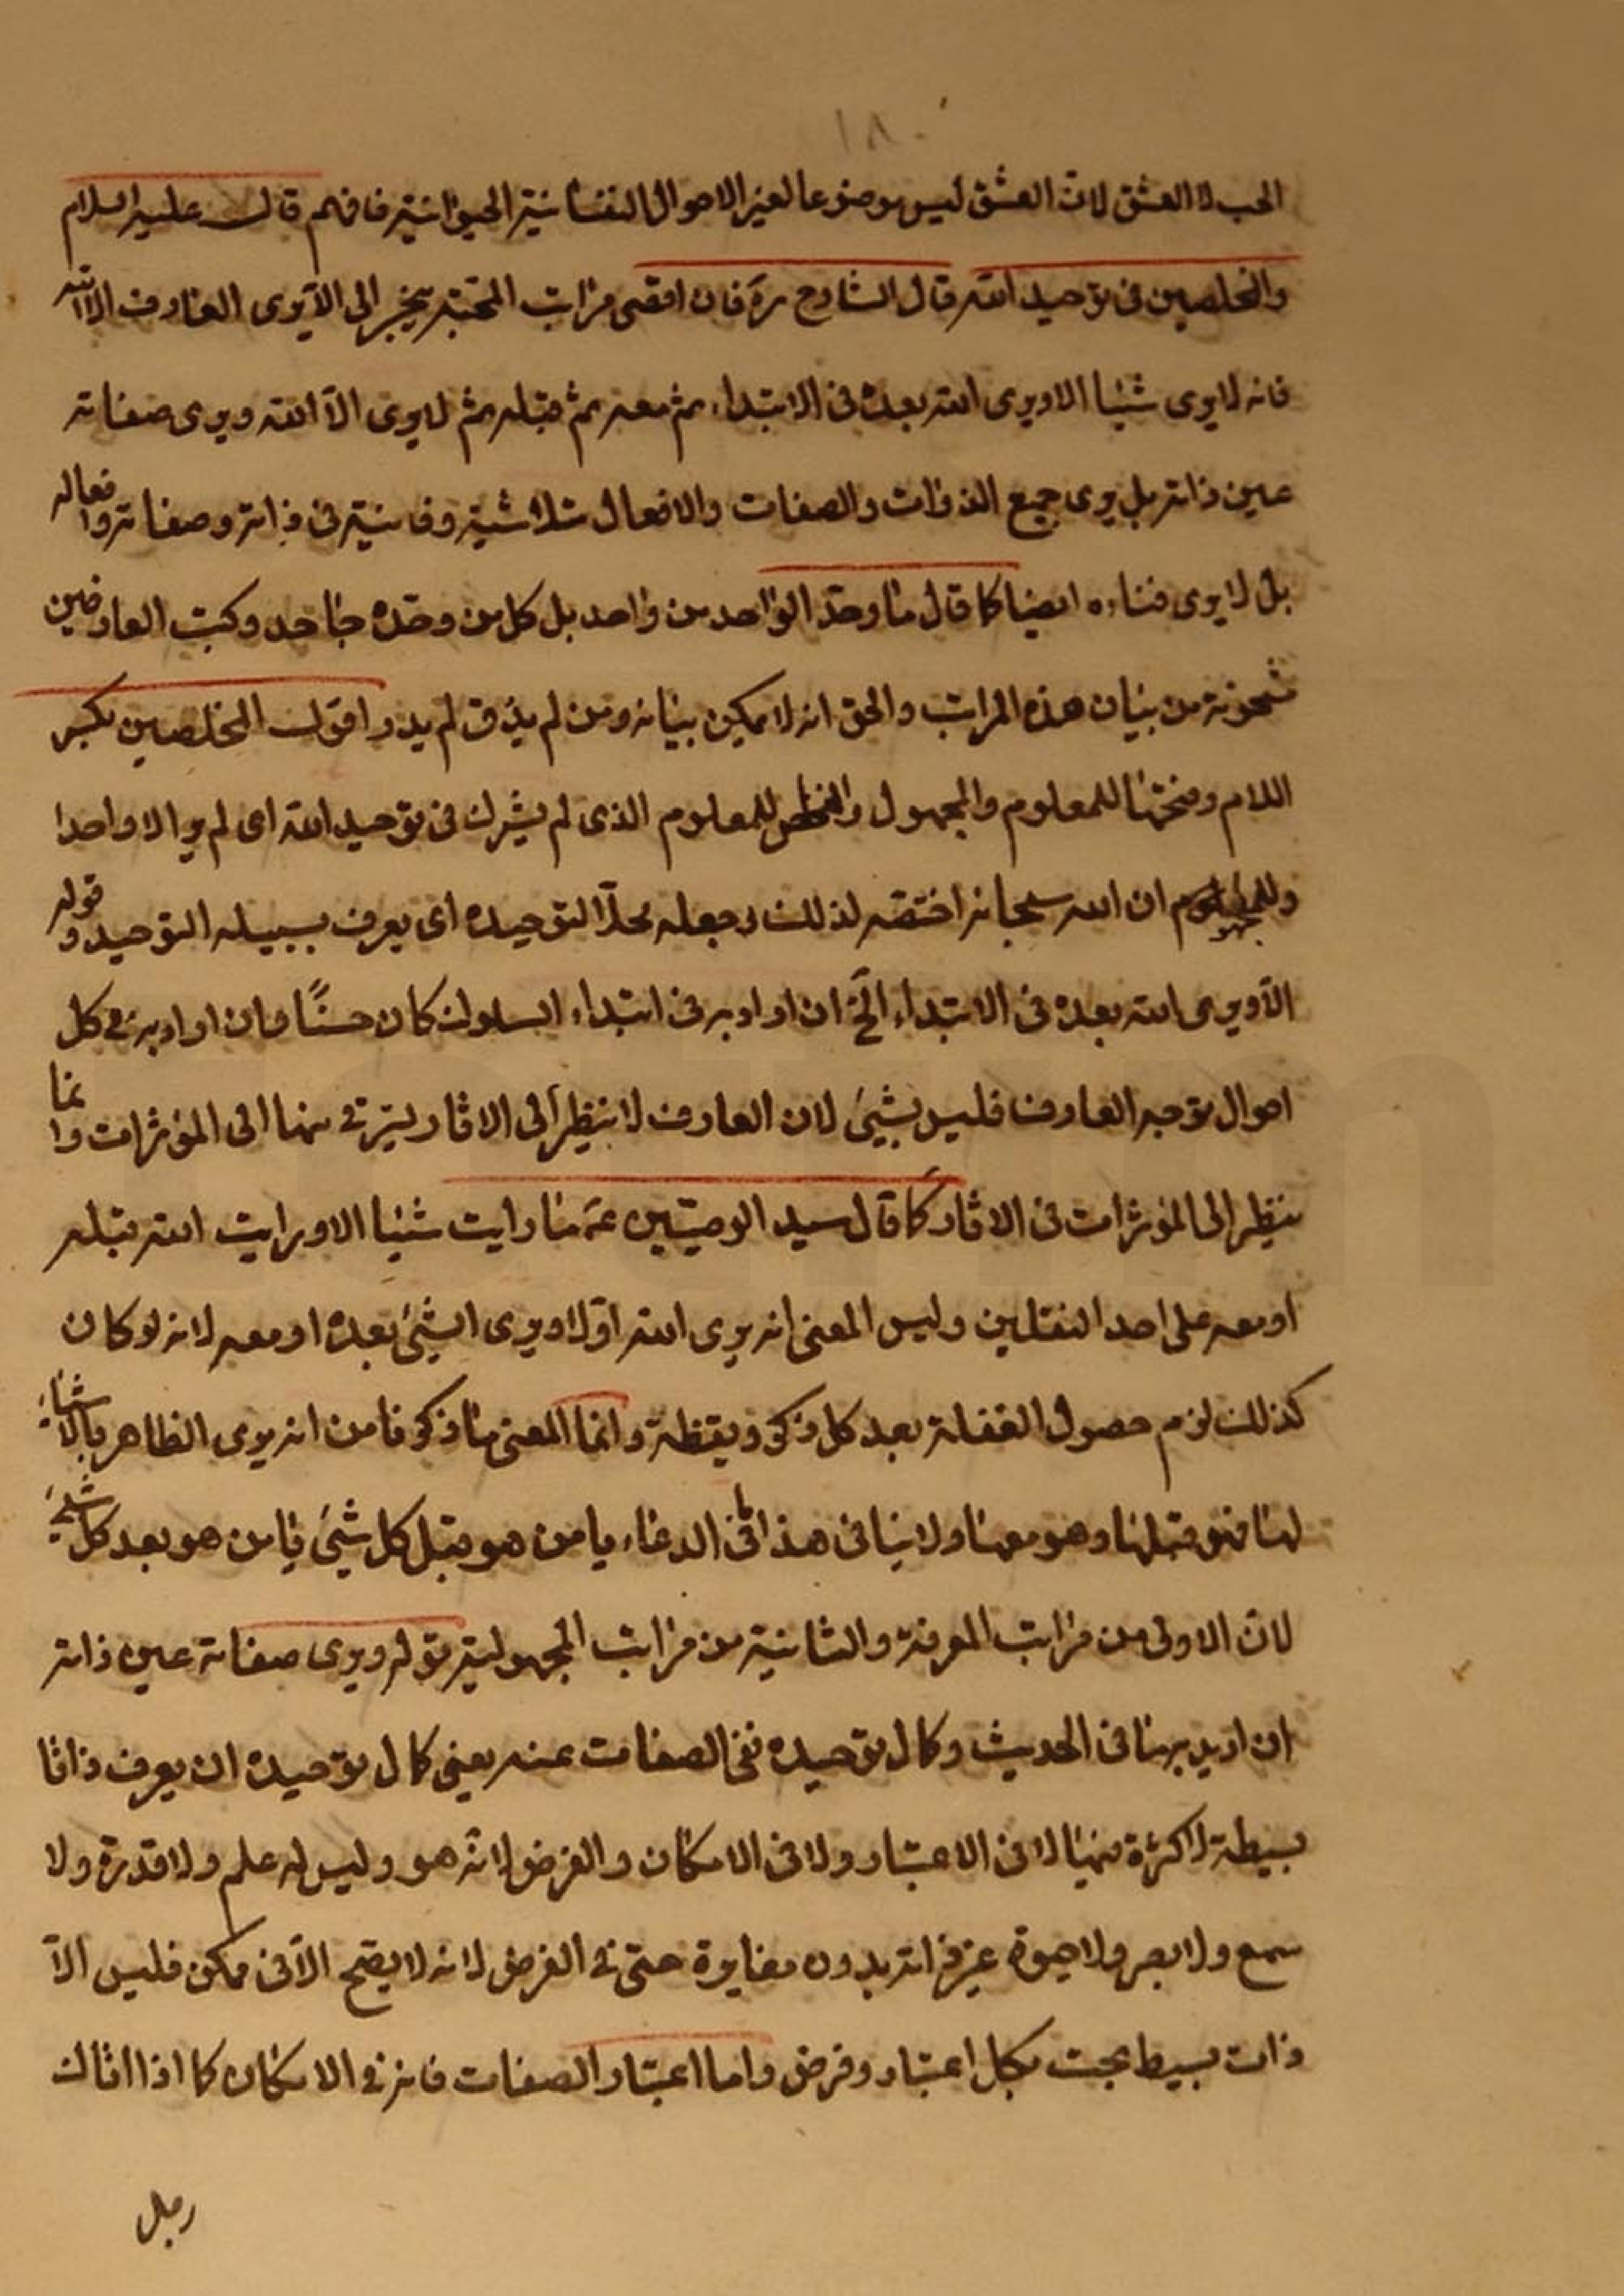 ١٨٠
الحب لا العشق لانّ العشق ليس موضوعا لغير الاحوال النفسانية الحيوانية فافهم قال عليه السلام
والمخلصين فى توحيد الله قال الشارح ره فان اقصى مراتب المحبّة ينجر الى الّا يرى العارف الا الله
فانه لا يرى شيئا الا ويرى الله بعده فى الابتداء ثم معه ثم قبله ثم لا يرى الّا الله ويرى صفاته
عين ذاته بل يرى جميع الذوات والصفات والافعال متلاشية وفانية فى ذاته وصفاته وافعاله
بل لا يرى فناءه ايضا كما قال ما وحّد الواحد من واحد بل كل من وحّده جاحد وكتب العارفين
مشحونة من بيان هذه المراتب والحق انه لا يمكن بيانه ومن لم يذق لم يدر اقول المخلصين بكسر
اللام وفتحها للمعلوم والمجهول والمخلص للمعلوم الذى لم يشرك فى توحيد الله اى لم ير الا واحدا
وللمجهول ان الله سبحانه اختصّه لذلك وجعله محلّا لتوحيده اى يعرف بسبيله التوحيد وقوله
الّا ويرى الله بعده فى الابتداء الخ ان اراد به فى ابتداء السلوك كان حسنًا وان اراد به فى كل
احوال توجه العارف فليس بشىء لان العارف لا ينظر الى الاثار ليترقى منها الى المؤثرات وانما
ينظر الى المؤثرات فى الاثار كما قال سيد الوصيّين ع ما رايت شيئا الا ورايت الله قبله
او معه على احد النقلين وليس المعنى انه يرى الله اوّلا ويرى الشىء بعده او معه لانه لو كان
كذلك لزم حصول الغفلة بعد كل ذكر ويقظة وانما المعنى ما ذكرنا من انه يرى الظاهر بالاشياء
لها فهو قبلها وهو معها ولا ينافى هذا ما فى الدعاء يا من هو قبل كل شىء يا من هو بعد كل شىء
لانّ الاولى من مراتب المعرفة والثانية من مراتب المجهولية قوله ويرى صفاته عين ذاته
ان اريد بها ما فى الحديث وكمال توحيده نفى الصفات عنه يعنى كمال توحيده ان يعرف ذاتا
بسيطة لا كثرة فيها لا فى الاعتبار ولا فى الامكان والفرض لانّه هو وليس له علم ولا قدرة ولا
سمع ولا بصر ولا حيوة غير ذاته بدون مغايرة حتى فى الفرض لانه لا يصّح الّا فى ممكن فليس الّا
ذات بسيط بحت بكل اعتبار وفرض واما اعتبار الصفات فانه فى الامكان كما اذا اتاك
رجل